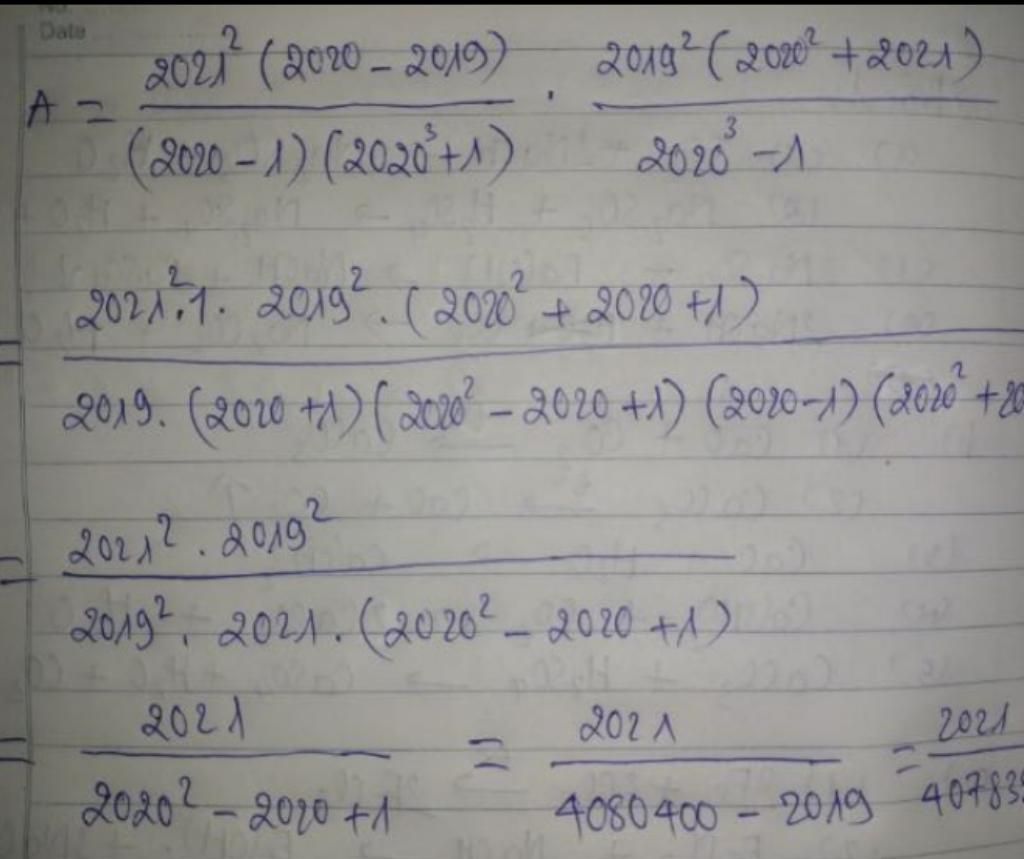 Date
A = 2021² (2020 - 2019) / (2020 - 1) (2020³ + 1) . 2019² (2020² + 2021) / 2020³ - 1
= 2021².1. 2019² . (2020² + 2020 + 1) / 2019. (2020 + 1) (2020² - 2020 + 1) (2020 - 1) (2020² + 20
= 2021² . 2019² / 2019² . 2021 . (2020² - 2020 + 1)
= 2021 / 2020² - 2020 + 1 = 2021 / 4080400 - 2019 = 2021 / 407838